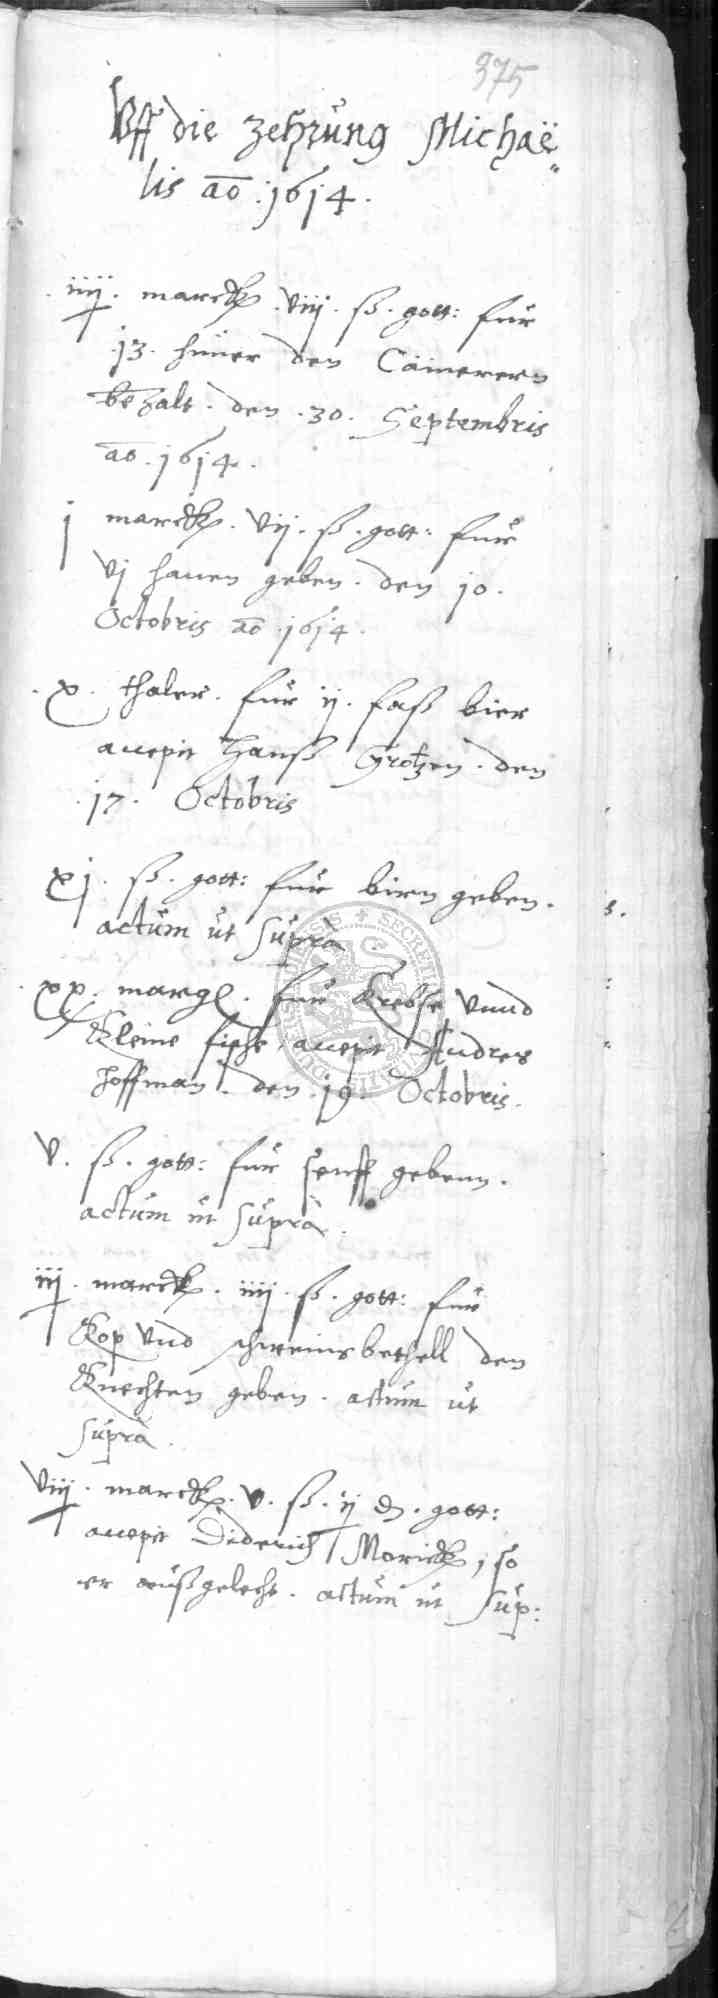 375
Uff die zehrung Michaë„
lis aō .1614.
iiij. marck. viij. ß. gott: fur
.13. huner den Camerern
bezalt. den .30. Septembris
aō .1614.
j marck. vij. ß. gott: fur
vj hanen geben. den 10.
Octobris aō .1614.
.x. thaler. fur ij. faß bier
accepit Hanß Grotzen. den
.17. Octobris
xj. ß. gott: fur birn geben.
actum ut suprà
.xx. margl. fur Krebse vnnd
Kleine fische accepit Andres
Hoffman. den .19. Octobris.
v. ß. gott: fur senff gebenn.
actum ut suprà.
iij. marck. iiij. ß. gott: fur
Kop vnd schweinsbethell den
Knechten geben. actum ut
suprà.
viij. marck. v. ß. ij d. gott:
accepit Diderich Morick, so
er außgelecht. actum ut sup: